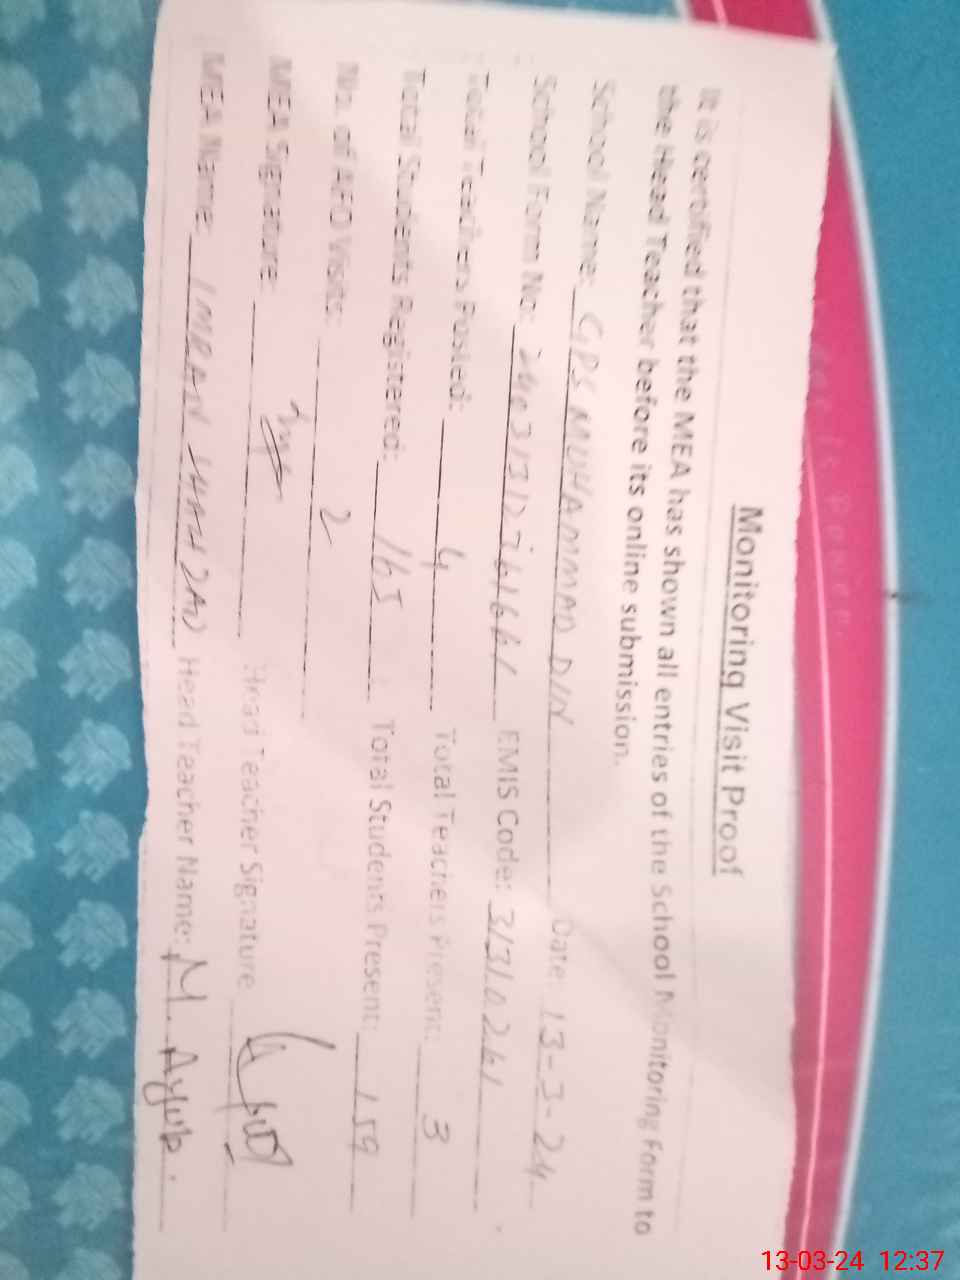 Monitoring Visit Proof
It is certified that the MEA has shown all entries of the School Monitoring Form to
the Head Teacher before its online submission.
School Name: GPS MUHAMMAD DIN Date: 13-3-24
School Form No: EMIS Code: 31310261
Total Teachers Posted: 4 Total Teachers Present: 3
Total Students Registered: 165 Total Students Present: 159
No. of AEO Visits: 2
MEA Signature: Head Teacher Signature
MEA Name: IMRAN SHAHZAD Head Teacher Name: M. Ayub.
13-03-24 12:37